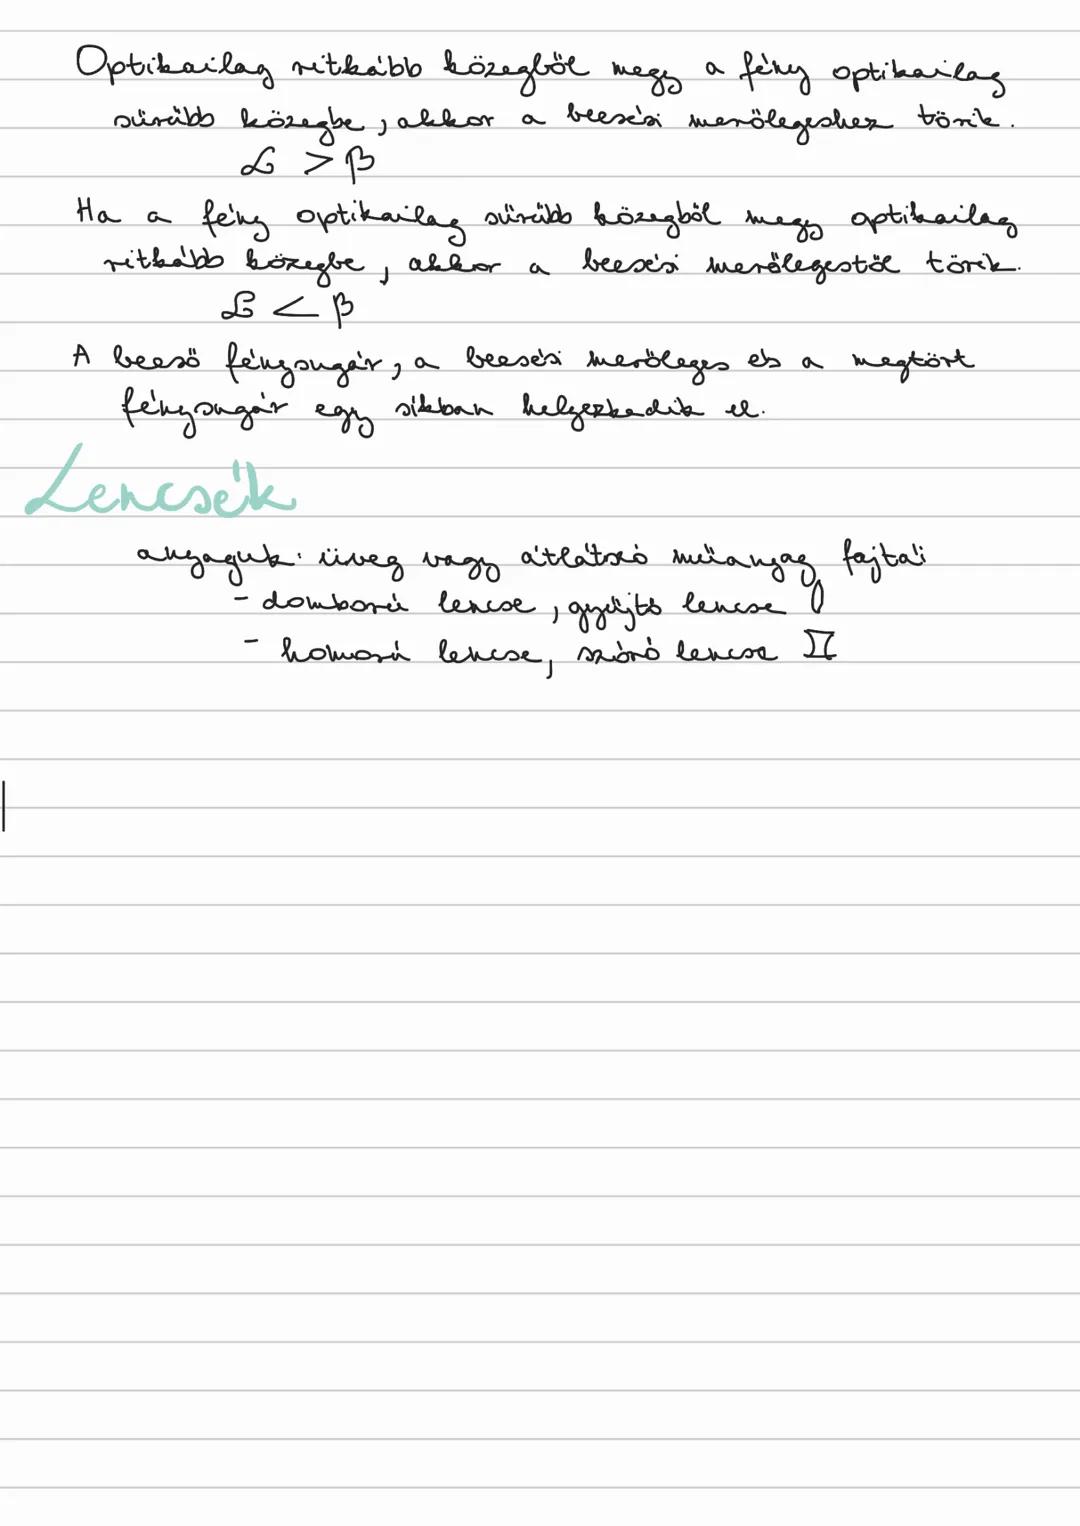 Optikailag ritkább közegből megy a fény optikailag
sűrűbb közegbe, akkor a beesési merőlegeshez törik.
α > β
Ha a fény optikailag sűrűbb közegből megy optikailag
ritkább közegbe, akkor a beesési merőlegestől törik.
α < β
A beeső fénysugár, a beesési merőleges és a megtört
fénysugár egy síkban helyezkedik el.
Lencsék
anyaguk: üveg vagy átlátszó műanyag fajtái
- domború lencse, gyűjtő lencse
- homorú lencse, szóró lencse